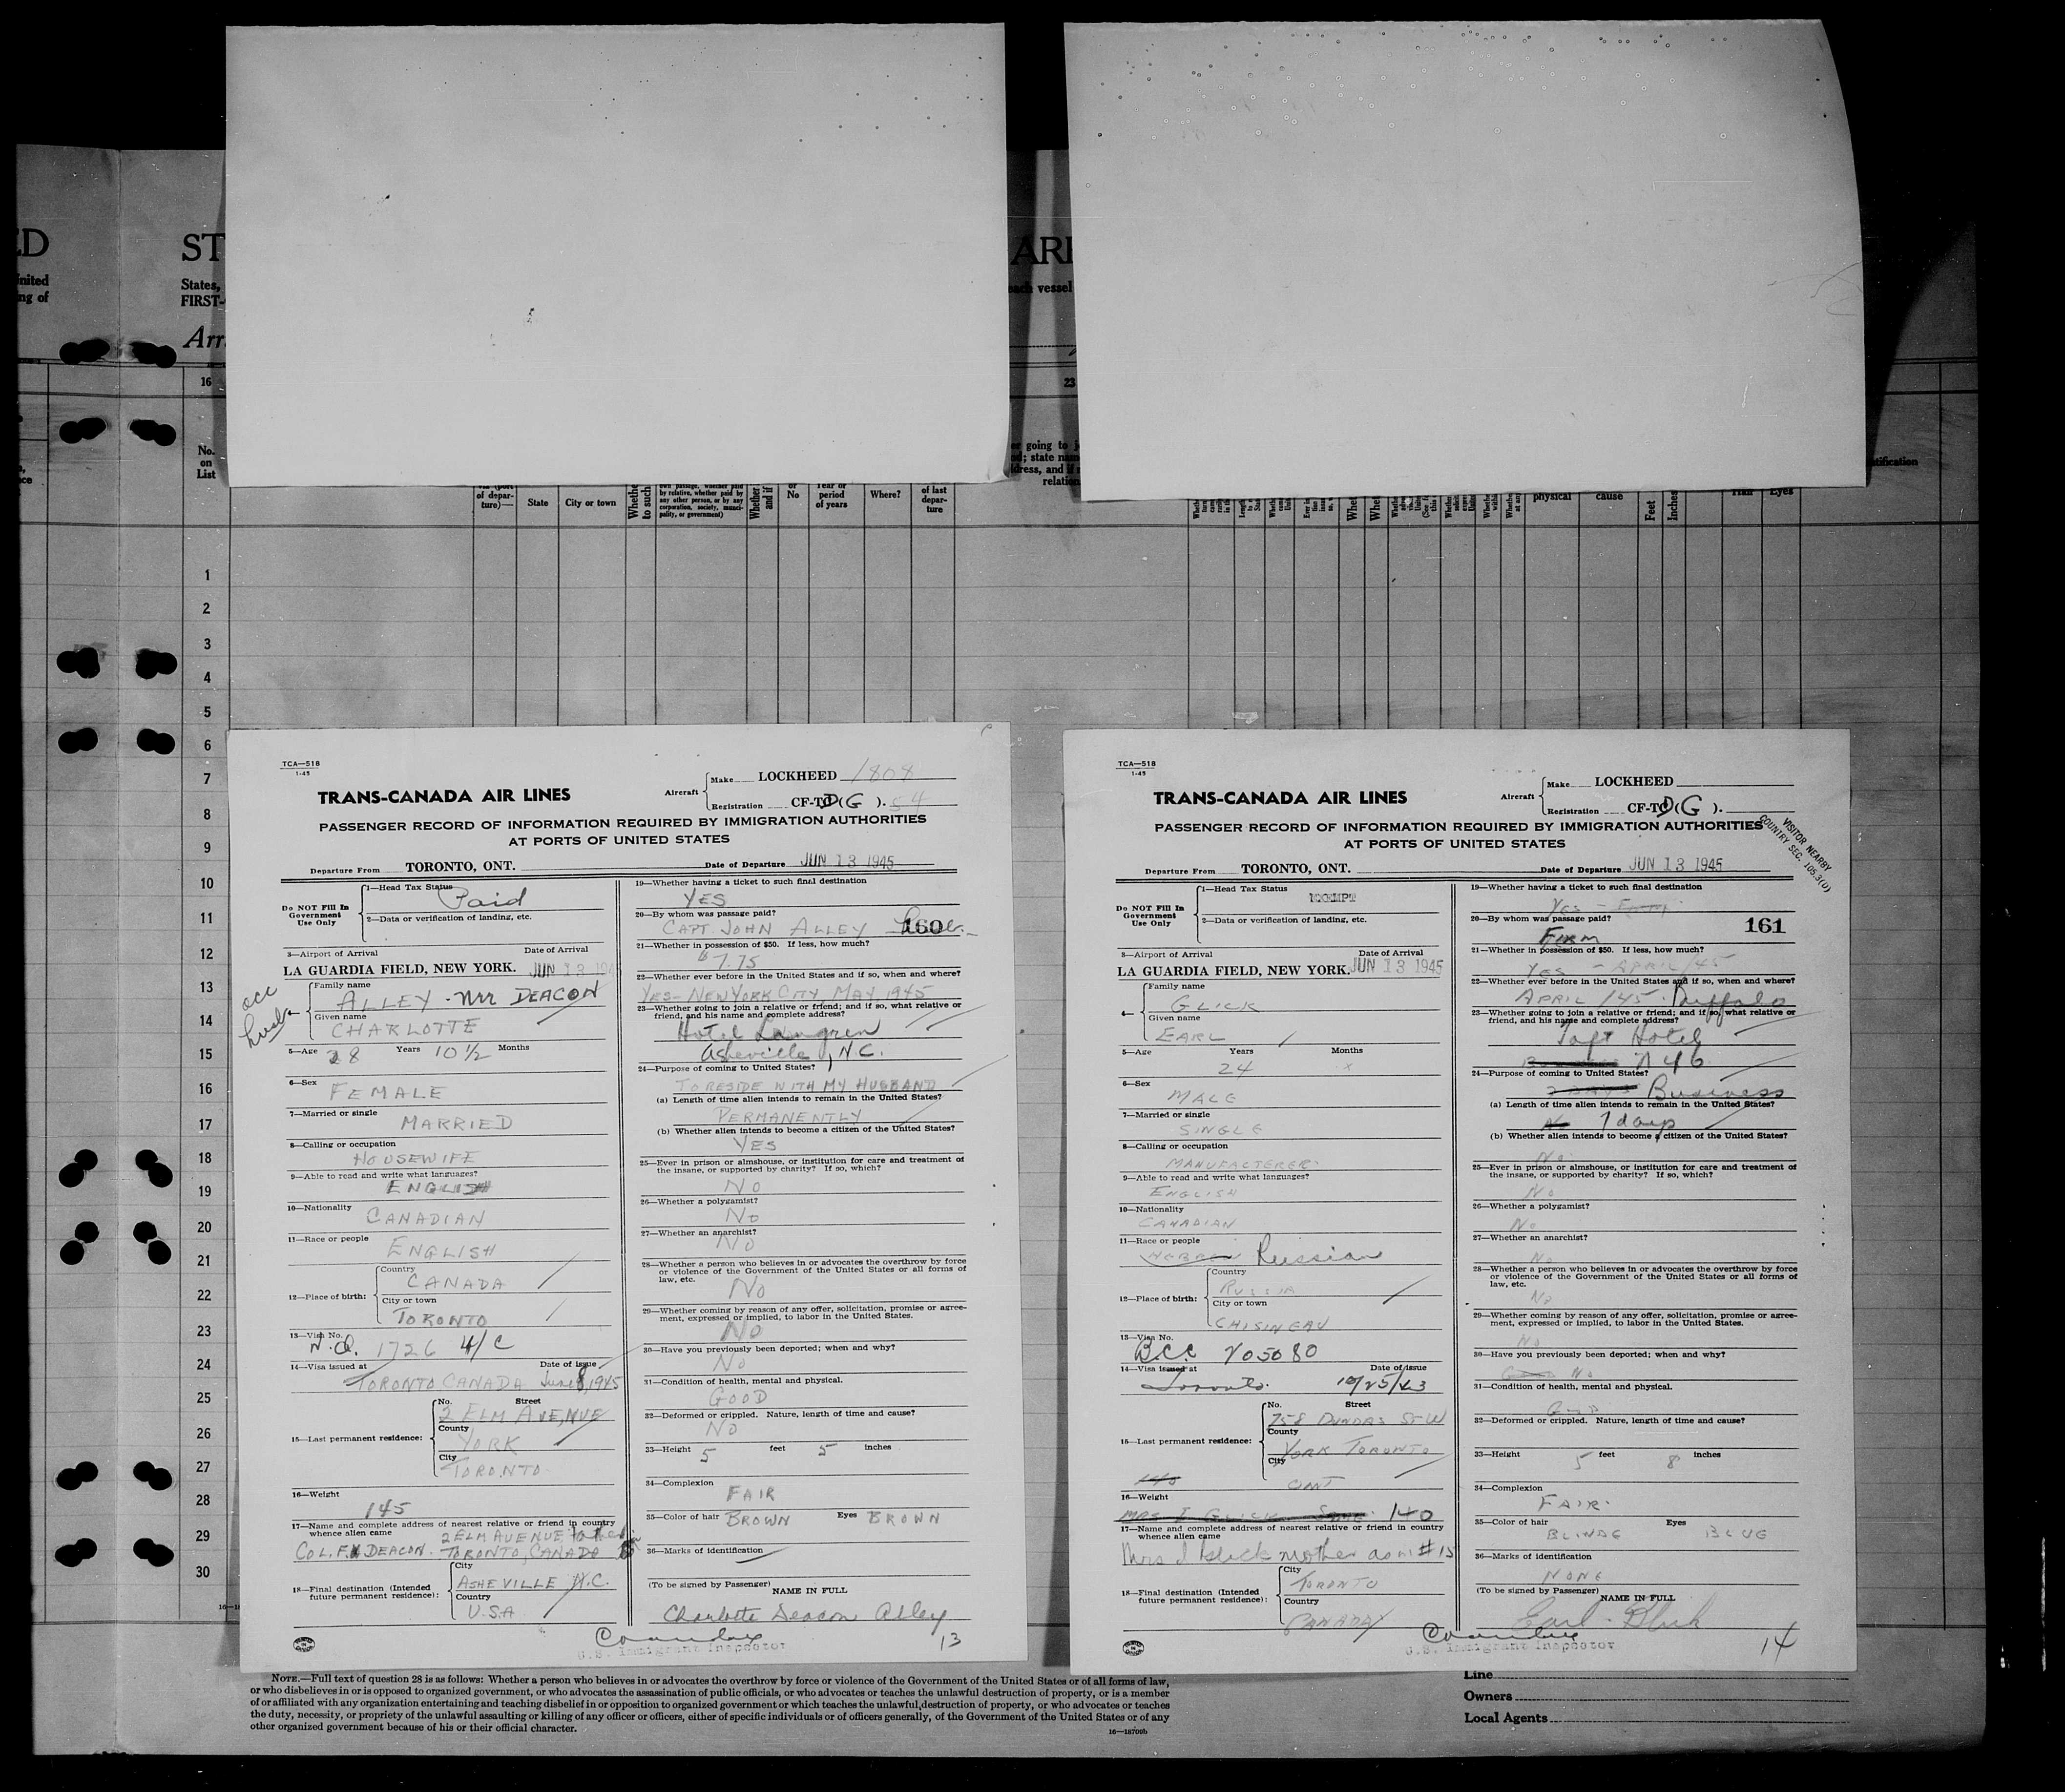 ED
ST
ARR
United
ng of
States,
FIRST-
each vessel
Arr
16
23
No.
on
List
er going to j
nd; state nam
ddress, and if
relation
of depar-
ture)—
State
City or town
Whether
to such
own passage, whether paid
by relative, whether paid by
any other person, or by any
corporation, society, munici-
pality, or government)
Whether
and if
or
No
Year or
period
of years
Where?
of last
depar-
ture
physical
cause
Feet
Inches
Hair
Eyes
1
2
3
4
5
6
7
8
9
10
11
12
13
14
15
16
17
18
19
20
21
22
23
24
25
26
27
28
29
30
TCA—518
1-45
TRANS-CANADA AIR LINES
Aircraft
Make LOCKHEED 1808
Registration CF-TCD (G ). 54
PASSENGER RECORD OF INFORMATION REQUIRED BY IMMIGRATION AUTHORITIES
AT PORTS OF UNITED STATES
Departure From TORONTO, ONT. Date of Departure JUN 13 1945
Do NOT Fill In
Government
Use Only
1—Head Tax Status Paid
2—Data or verification of landing, etc.
3—Airport of Arrival Date of Arrival
LA GUARDIA FIELD, NEW YORK. JUN 13 194
acc
husb
Family name
ALLEY - nee DEACON
Given name
CHARLOTTE
5—Age 28 Years 10 1/2 Months
6—Sex
FEMALE
7—Married or single
MARRIED
8—Calling or occupation
HOUSEWIFE
9—Able to read and write what languages?
ENGLISH
10—Nationality
CANADIAN
11—Race or people
ENGLISH
12—Place of birth:
Country
CANADA
City or town
TORONTO
13—Visa No.
N.Q. 1726 4/C
14—Visa issued at Date of issue
TORONTO CANADA June 8, 1945
15—Last permanent residence:
No. Street
2 ELM AVENUE
County
YORK
City
TORONTO
16—Weight
145
17—Name and complete address of nearest relative or friend in country
whence alien came 2 ELM AVENUE father
COL. F. DEACON. TORONTO, CANADA
18—Final destination (Intended
future permanent residence):
City
ASHEVILLE N.C.
Country
U.S.A
19—Whether having a ticket to such final destination
YES
20—By whom was passage paid?
CAPT. JOHN ALLEY 160
21—Whether in possession of $50. If less, how much?
$7.75
22—Whether ever before in the United States and if so, when and where?
YES—NEW YORK CITY MAY, 1945
23—Whether going to join a relative or friend; and if so, what relative or
friend, and his name and complete address?
Hotel Langren
Asheville, N.C.
24—Purpose of coming to United States?
TO RESIDE WITH MY HUSBAND
(a) Length of time alien intends to remain in the United States?
PERMANENTLY
(b) Whether alien intends to become a citizen of the United States?
YES
25—Ever in prison or almshouse, or institution for care and treatment of
the insane, or supported by charity? If so, which?
NO
26—Whether a polygamist?
NO
27—Whether an anarchist?
NO
28—Whether a person who believes in or advocates the overthrow by force
or violence of the Government of the United States or all forms of
law, etc.
NO
29—Whether coming by reason of any offer, solicitation, promise or agree-
ment, expressed or implied, to labor in the United States.
NO
30—Have you previously been deported; when and why?
NO
31—Condition of health, mental and physical.
GOOD
32—Deformed or crippled. Nature, length of time and cause?
NO
33—Height 5 feet 5 inches
34—Complexion
FAIR
35—Color of hair BROWN Eyes BROWN
36—Marks of identification
(To be signed by Passenger)
NAME IN FULL
Charlotte Deacon Alley
U.S. Immigrant Inspector
13
TCA—518
1-45
TRANS-CANADA AIR LINES
Aircraft
Make LOCKHEED
Registration CF-TCD (G ).
PASSENGER RECORD OF INFORMATION REQUIRED BY IMMIGRATION AUTHORITIES
AT PORTS OF UNITED STATES
VISITOR NEARBY
COUNTRY SEC. 105.3(U)
Departure From TORONTO, ONT. Date of Departure JUN 13 1945
Do NOT Fill In
Government
Use Only
1—Head Tax Status EXEMPT
2—Data or verification of landing, etc.
3—Airport of Arrival Date of Arrival
LA GUARDIA FIELD, NEW YORK. JUN 13 1945
4—
Family name
GLICK
Given name
EARL
5—Age Years Months
24 x
6—Sex
MALE
7—Married or single
SINGLE
8—Calling or occupation
MANUFACTERER
9—Able to read and write what languages?
ENGLISH
10—Nationality
CANADIAN
11—Race or people
HEBREW Russian
12—Place of birth:
Country
RUSSIA
City or town
CHISINEAU
13—Visa No.
B.C.C. 705080
14—Visa issued at Date of issue
Toronto 10/25/43
15—Last permanent residence:
No. Street
758 DUNDAS ST W
County
YORK TORONTO
City
ONT
140
16—Weight
MRS I GLICK SAME 140
17—Name and complete address of nearest relative or friend in country
whence alien came
Mrs I Glick mother as in #15
18—Final destination (Intended
future permanent residence):
City
TORONTO
Country
CANADA
19—Whether having a ticket to such final destination
YES — FIRM
20—By whom was passage paid?
FIRM 161
21—Whether in possession of $50. If less, how much?
YES — APRIL/45
22—Whether ever before in the United States and if so, when and where?
APRIL /45. Buffalo
23—Whether going to join a relative or friend; and if so, what relative or
friend, and his name and complete address?
Taft Hotel
N Y C
24—Purpose of coming to United States?
Business
(a) Length of time alien intends to remain in the United States?
No 7 days
(b) Whether alien intends to become a citizen of the United States?
No
25—Ever in prison or almshouse, or institution for care and treatment of
the insane, or supported by charity? If so, which?
No
26—Whether a polygamist?
No
27—Whether an anarchist?
No
28—Whether a person who believes in or advocates the overthrow by force
or violence of the Government of the United States or all forms of
law, etc.
No
29—Whether coming by reason of any offer, solicitation, promise or agree-
ment, expressed or implied, to labor in the United States.
No
30—Have you previously been deported; when and why?
No
31—Condition of health, mental and physical.
Good
32—Deformed or crippled. Nature, length of time and cause?
33—Height 5 feet 8 inches
34—Complexion
FAIR.
35—Color of hair Eyes
BLINDE BLUE
36—Marks of identification
NONE
(To be signed by Passenger)
NAME IN FULL
Earl Glick
U.S. Immigrant Inspector
14
NOTE.—Full text of question 28 is as follows: Whether a person who believes in or advocates the overthrow by force or violence of the Government of the United States or of all forms of law,
or who disbelieves in or is opposed to organized government, or who advocates the assassination of public officials, or who advocates or teaches the unlawful destruction of property, or is a member
of or affiliated with any organization entertaining and teaching disbelief in or opposition to organized government or which teaches the unlawful destruction of property, or who advocates or teaches
the duty, necessity, or propriety of the unlawful assaulting or killing of any officer or officers, either of specific individuals or of officers generally, of the Government of the United States or of any
other organized government because of his or their official character.
16—18709b
Line
Owners
Local Agents